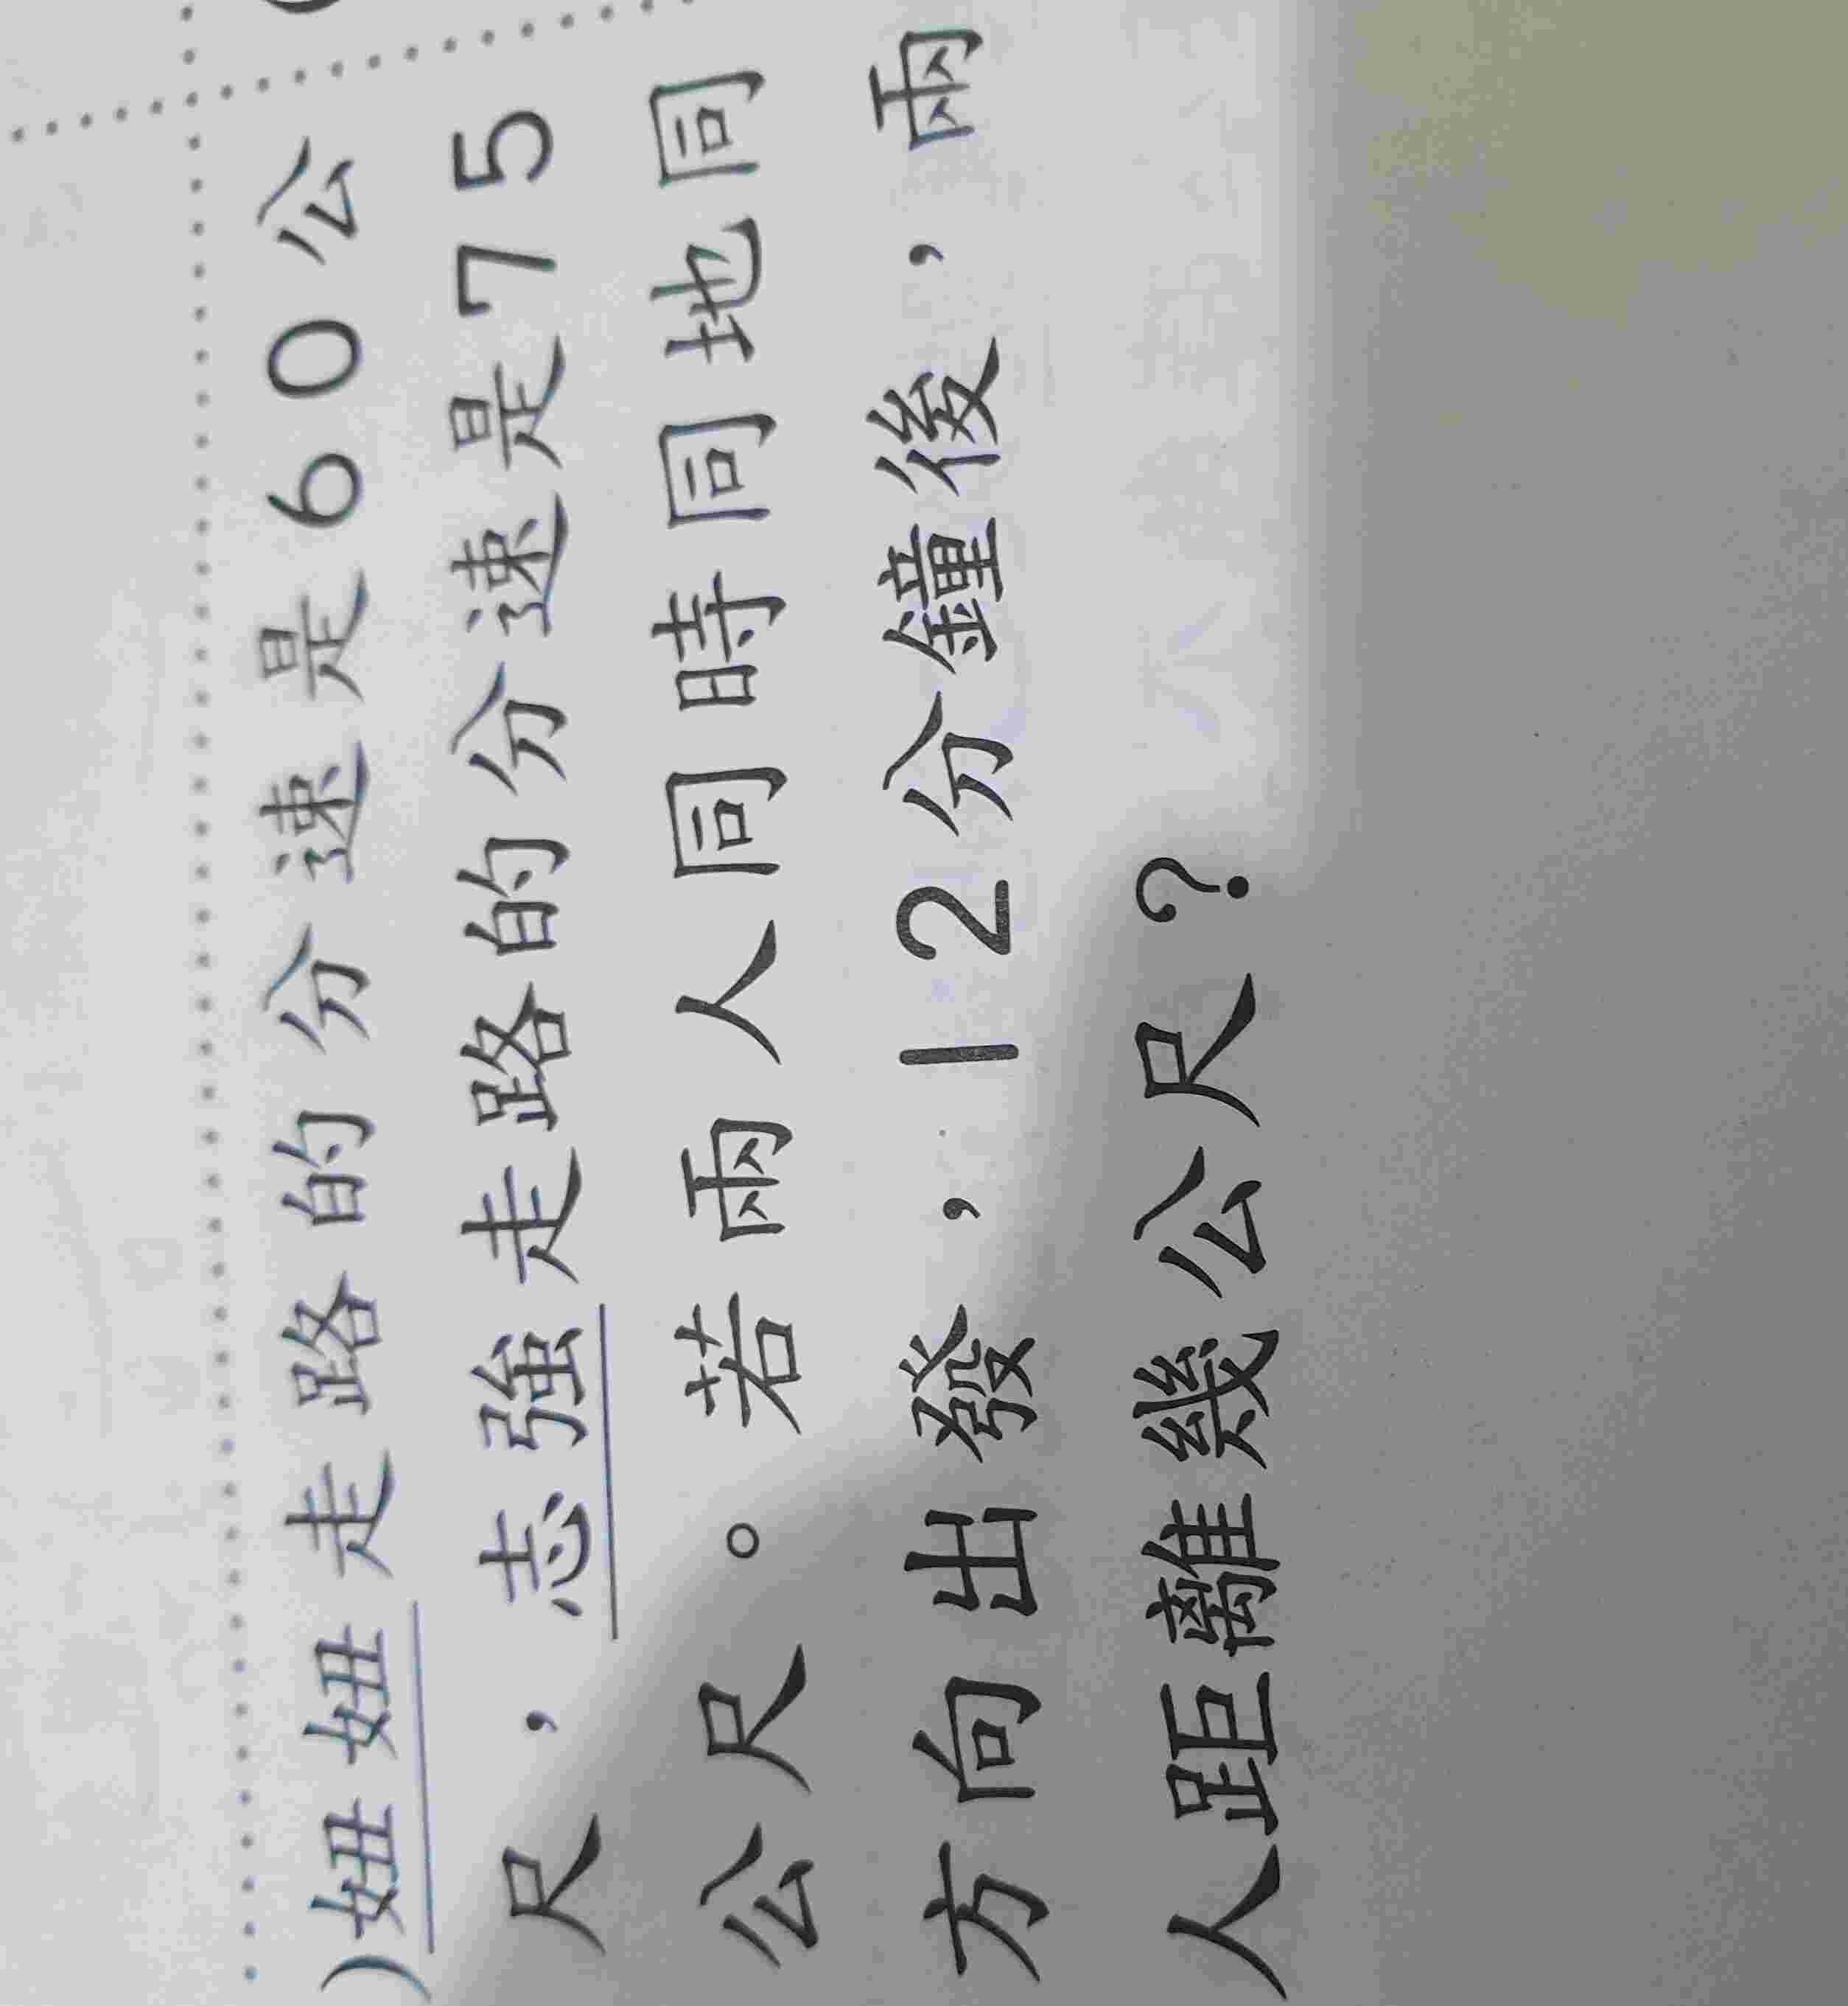 )妞妞走路的分速是60公
尺，志強走路的分速是75
公尺。若兩人同時同地同
方向出發，12分鐘後，兩
人距離幾公尺？